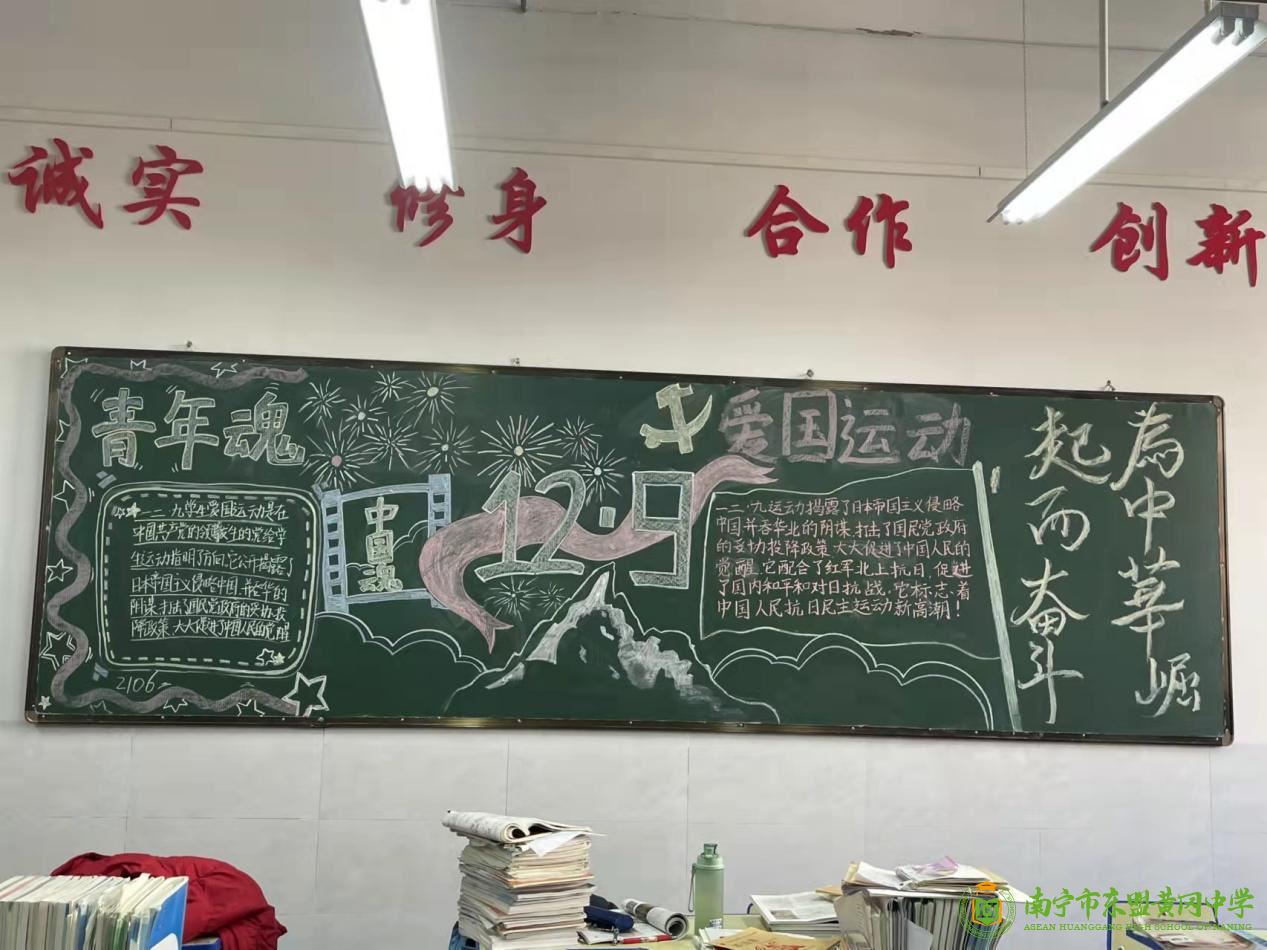 诚实 修身 合作 创新
青年魂
一二·九学生爱国运动是在
中国共产党的领导
生运动指明了方向,它公开揭露了
日本帝国主义侵略中国,并吞华北的
阴谋,打击了国民党政府的妥协投
降政策,大大促进了中国人民的觉醒
2106
中国魂
12·9
爱国运动
一二·九运动揭露了日本帝国主义侵略
中国并吞华北的阴谋,打击了国民党政府
的妥协投降政策,大大促进了中国人民的
觉醒,它配合了红军北上抗日,促进
了国内和平和对日抗战,它标志着
中国人民抗日民主运动新高潮!
為中華崛
起而奋斗
南宁市东盟黄冈中学
ASEAN HUANGGANG HIGH SCHOOL OF NANING